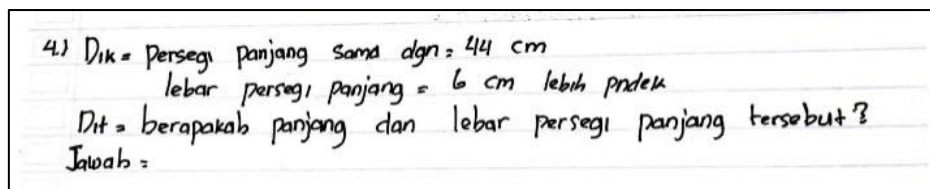 4) Dik = Persegi panjang sama dgn = 44 cm
lebar persegi panjang = 6 cm lebih pndek
Dit = berapakah panjang dan lebar persegi panjang tersebut?
Jawab =